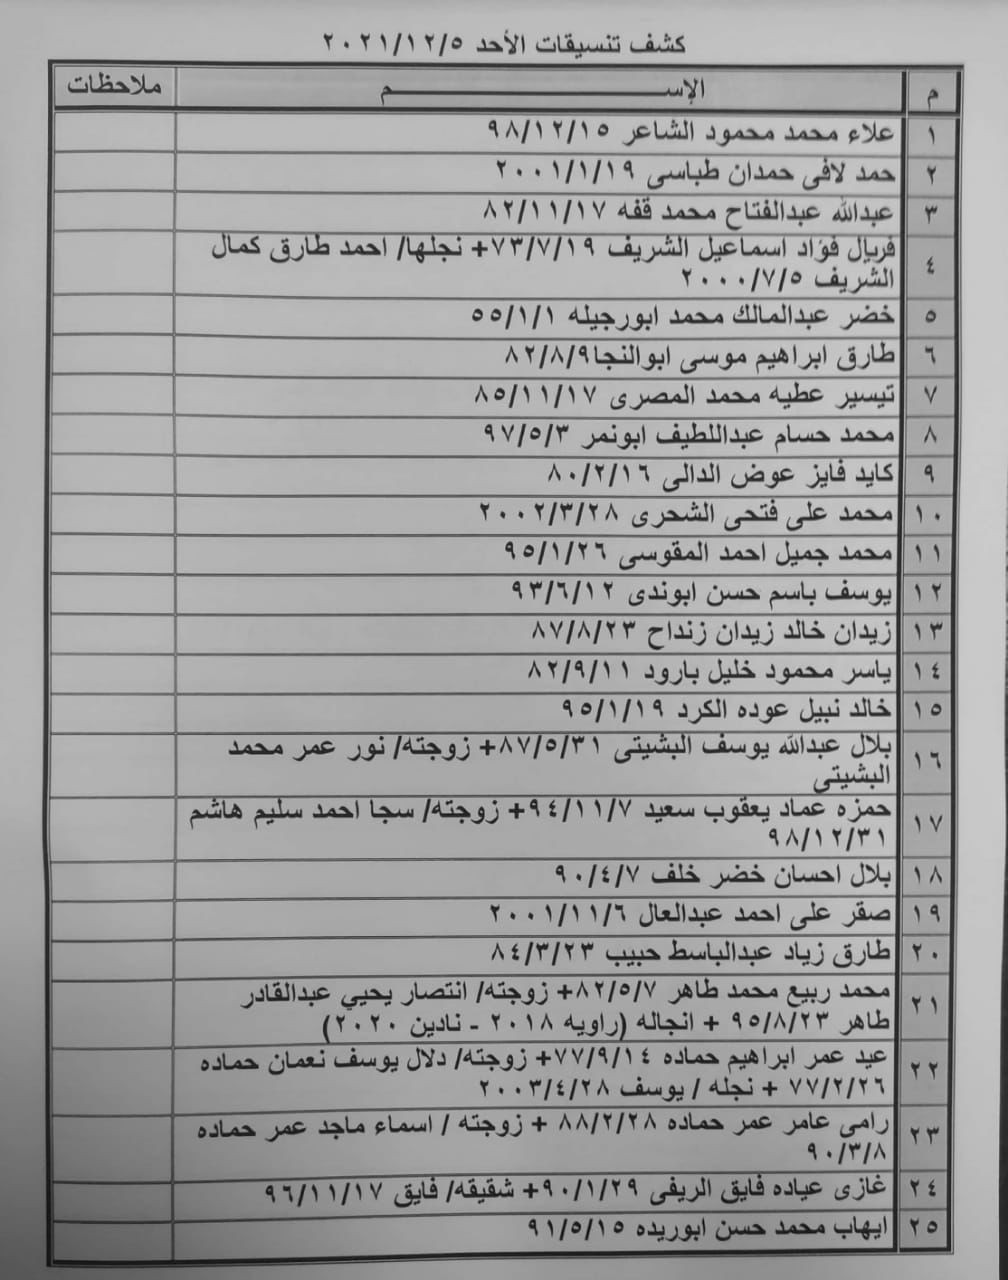 كشف تنسيقات الأحد ٢٠٢١/١٢/٥
م الإســـــــــم ملاحظات
١ علاء محمد محمود الشاعر ٩٨/١٢/١٥
٢ حمد لافى حمدان طباسى ٢٠٠١/١/١٩
٣ عبدالله عبدالفتاح محمد قفه ٨٢/١١/١٧
٤ فريال فؤاد اسماعيل الشريف ٧٣/٧/١٩+ نجلها/ احمد طارق كمال
الشريف ٢٠٠٠/٧/٥
٥ خضر عبدالمالك محمد ابورجيله ٥٥/١/١
٦ طارق ابراهيم موسى ابوالنجا٨٢/٨/٩
٧ تيسير عطيه محمد المصرى ٨٥/١١/١٧
٨ محمد حسام عبداللطيف ابونمر ٩٧/٥/٣
٩ كايد فايز عوض الدالى ٨٠/٢/١٦
١٠ محمد على فتحى الشحرى ٢٠٠٢/٣/٢٨
١١ محمد جميل احمد المقوسى ٩٥/١/٢٦
١٢ يوسف باسم حسن ابوندى ٩٣/٦/١٢
١٣ زيدان خالد زيدان زنداح ٨٧/٨/٢٣
١٤ ياسر محمود خليل بارود ٨٢/٩/١١
١٥ خالد نبيل عوده الكرد ٩٥/١/١٩
١٦ بلال عبدالله يوسف البشيتى ٨٧/٥/٣١+ زوجته/ نور عمر محمد
البشيتى
١٧ حمزه عماد يعقوب سعيد ٩٤/١١/٧+ زوجته/ سجا احمد سليم هاشم
٩٨/١٢/٣١
١٨ بلال احسان خضر خلف ٩٠/٤/٧
١٩ صقر على احمد عبدالعال ٢٠٠١/١١/٦
٢٠ طارق زياد عبدالباسط حبيب ٨٤/٣/٢٣
٢١ محمد ربيع محمد طاهر ٨٢/٥/٧+ زوجته/ انتصار يحيي عبدالقادر
طاهر ٩٥/٨/٢٣ + انجاله (راويه ٢٠١٨ - نادين ٢٠٢٠)
٢٢ عيد عمر ابراهيم حماده ٧٧/٩/١٤+ زوجته/ دلال يوسف نعمان حماده
٧٧/٢/٢٦ + نجله / يوسف ٢٠٠٣/٤/٢٨
٢٣ رامى عامر عمر حماده ٨٨/٢/٢٨ + زوجته / اسماء ماجد عمر حماده
٩٠/٣/٨
٢٤ غازى عياده فايق الريفى ٩٠/١/٢٩+ شقيقه/ فايق ٩٦/١١/١٧
٢٥ ايهاب محمد حسن ابوريده ٩١/٥/١٥